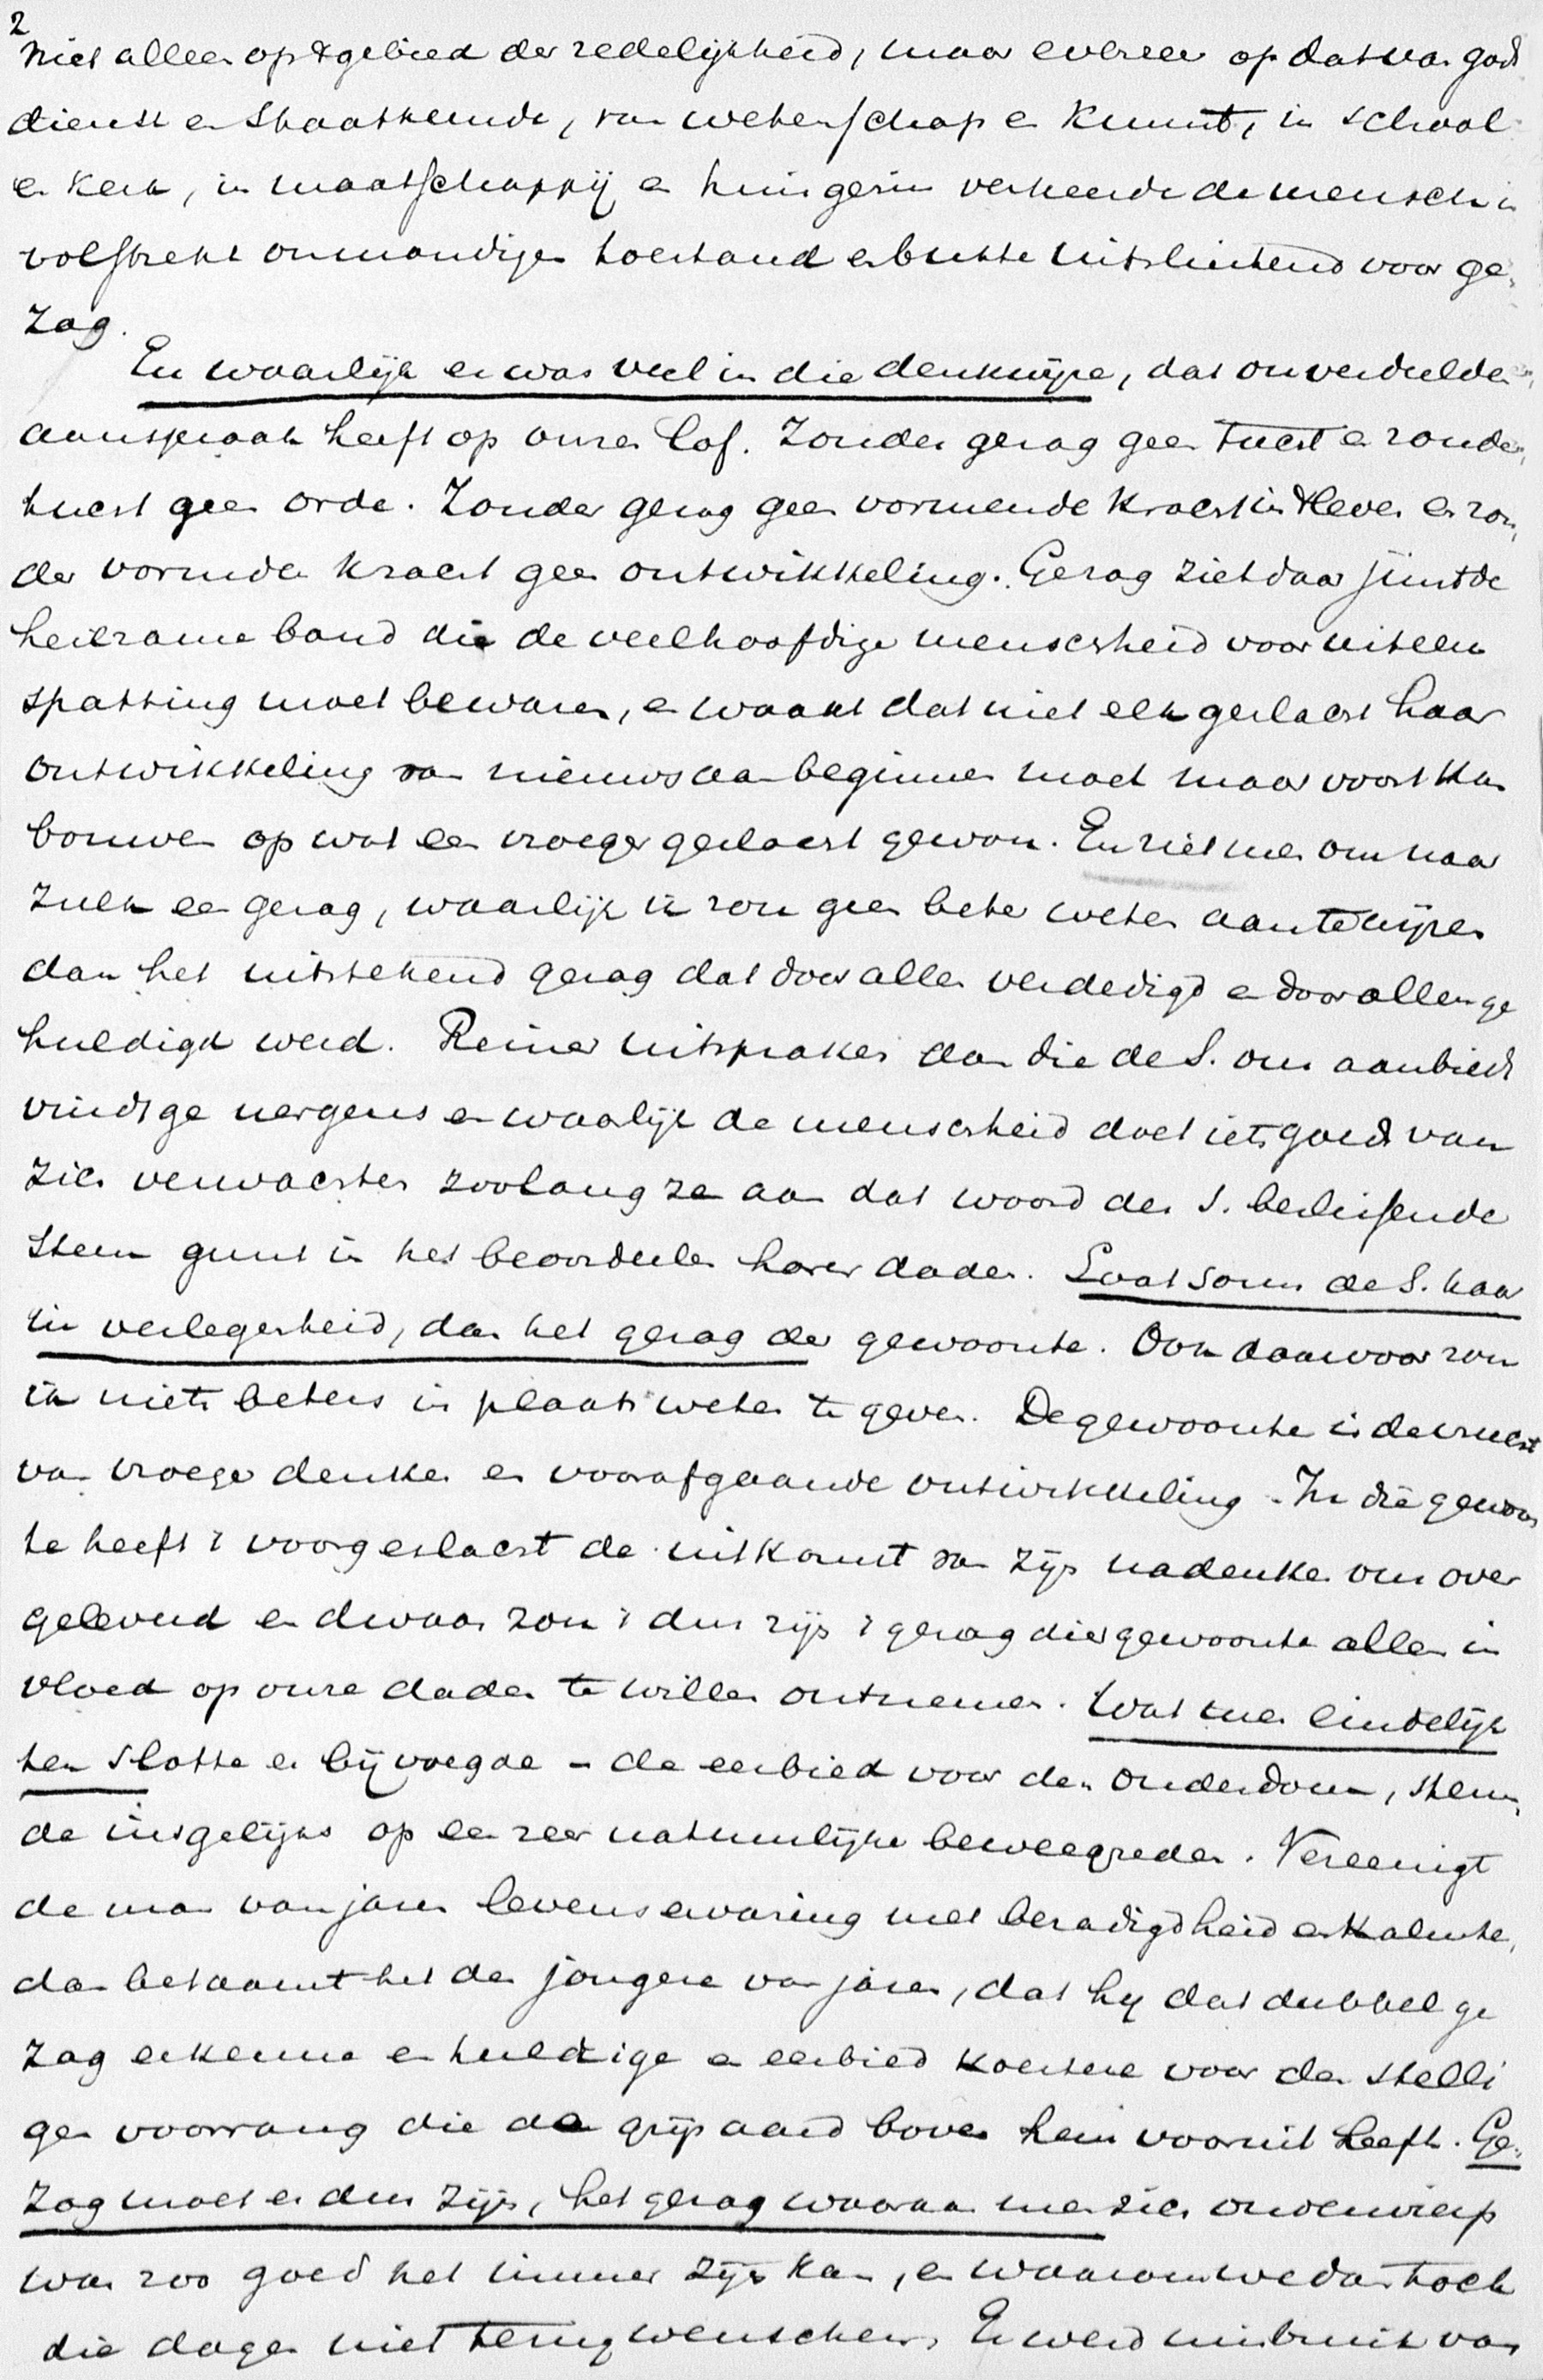 2
Niet alleen op 't gebied der zedelijkheid, maar evenzeer op dat van gods
dienst en Staatkunde, van wetenschap en Kunst, in school
en Kerk, in maatschappij en huisgezin verkeerde de mensch in
volstrekt onmondigen toestand en bukte uitsluitend voor ge-
zag.
En waarlijk er was veel in die denkwijze, dat onverdeelde
aanspraak heeft op onzen lof. Zonder gezag geen tucht en zonder
tucht geen orde. Zonder gezag geen vormende kracht in 't leven en zon-
der vormende kracht geen ontwikkeling. Gezag ziet daar juist de
heilzame band die de veelhoofdige menschheid voor uiteen
spatting moet bewaren, en waakt dat niet elk geslacht haar
ontwikkeling van nieuws aan beginnen moet maar voort kan
bouwen op wat een vroeger geslacht gewon. En ziet men om naar
zulk een gezag, waarlijk ik zou geen beter weten aan te wijzen
dan het uitstekend gezag dat door allen verdedigd en door allen ge
huldigd werd. Reiner uitspraken dan die de S. ons aanbiedt
vindt ge nergens en waarlijk de menschheid doet iets goeds van
zich verwachten zoolang ze aan dat woord der S. beslissende
stem gunt in het beoordeelen harer daden. Laat soms de S. haar
in verlegenheid, dan het gezag der gewoonte. Ook daarvoor zou
ik niets beters in plaats weten te geven. De gewoonte is de vrucht
van vroeger denken en voorafgaande ontwikkeling. In die gewoon
te heeft 't voorgeslacht de uitkomst van zijn nadenken ons over
geleverd en dwaas zou 't dus zijn 't gezag dier gewoonte allen in
vloed op onze daden te willen ontnemen. Wat men eindelijk
ten slotte er bijvoegde - de eerbied voor den ouderdom, stem-
de insgelijks op een zeer natuurlijke beweegreden. Vereenigt
de man van jaren levenservaring met bezadigdheid en kalmte,
dan betaamt het den jongere van jaren, dat hij dat dubbel ge
zag erkenne en huldige en eerbied koestere voor den stelli
gen voorrang die de grijsaard boven hem vooruit heeft. Ge-
zag moet er dus zijn, het gezag waaraan men zich onderwierp
was zoo goed het immer zijn kan, en waarom we dan toch
die dagen niet terugwenschen. Er werd misbruik van